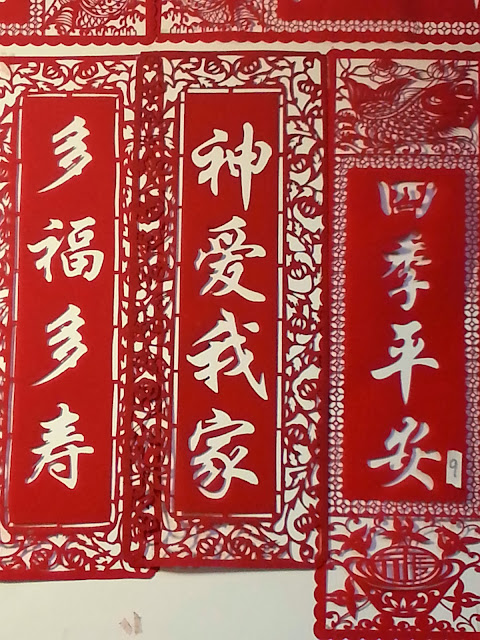 多福多寿
神爱我家
四季平安
9